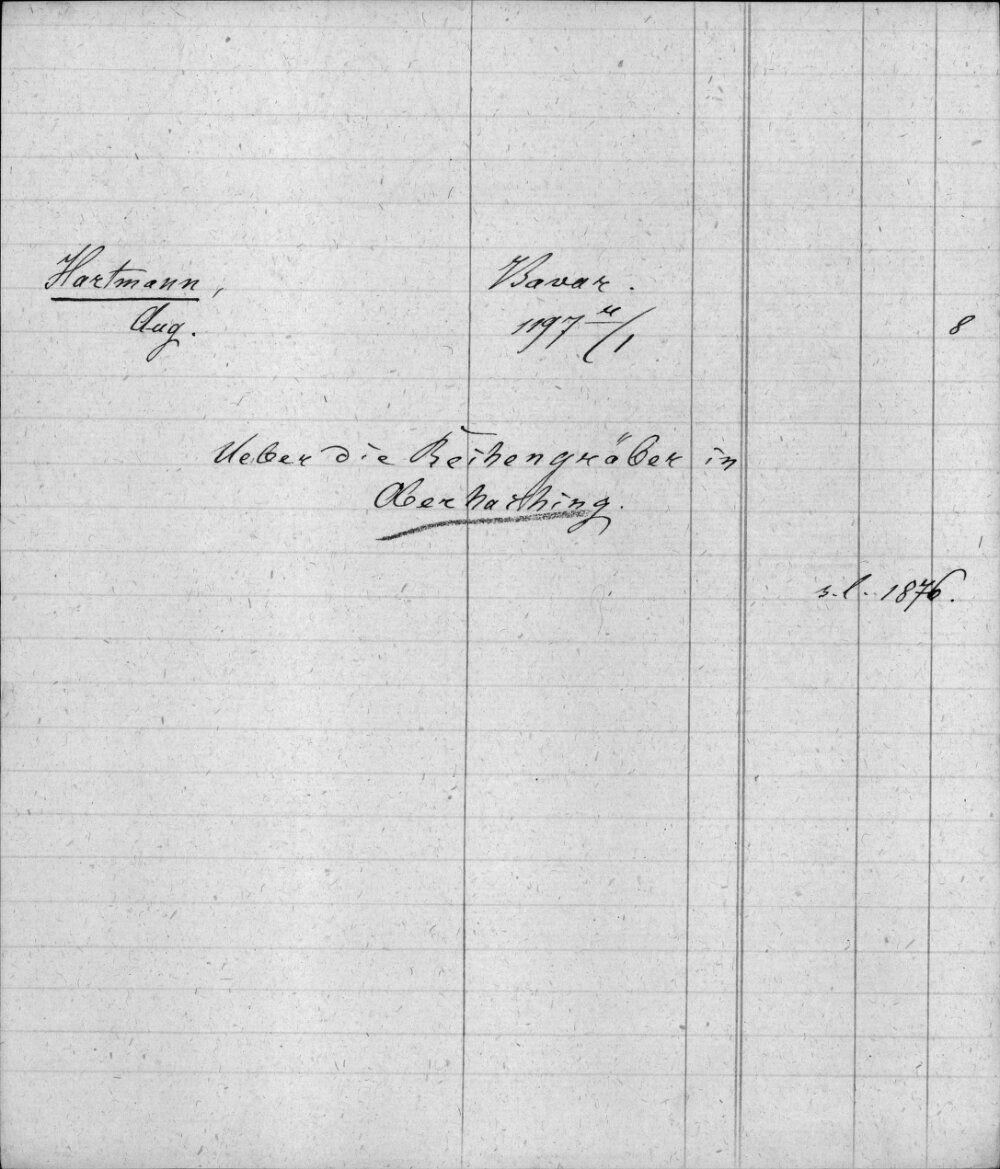 Hartmann, Bavar.
Aug. 1197 u/1 8
Ueber die Reihengräber in
Oberhaching.
s. l. 1876.